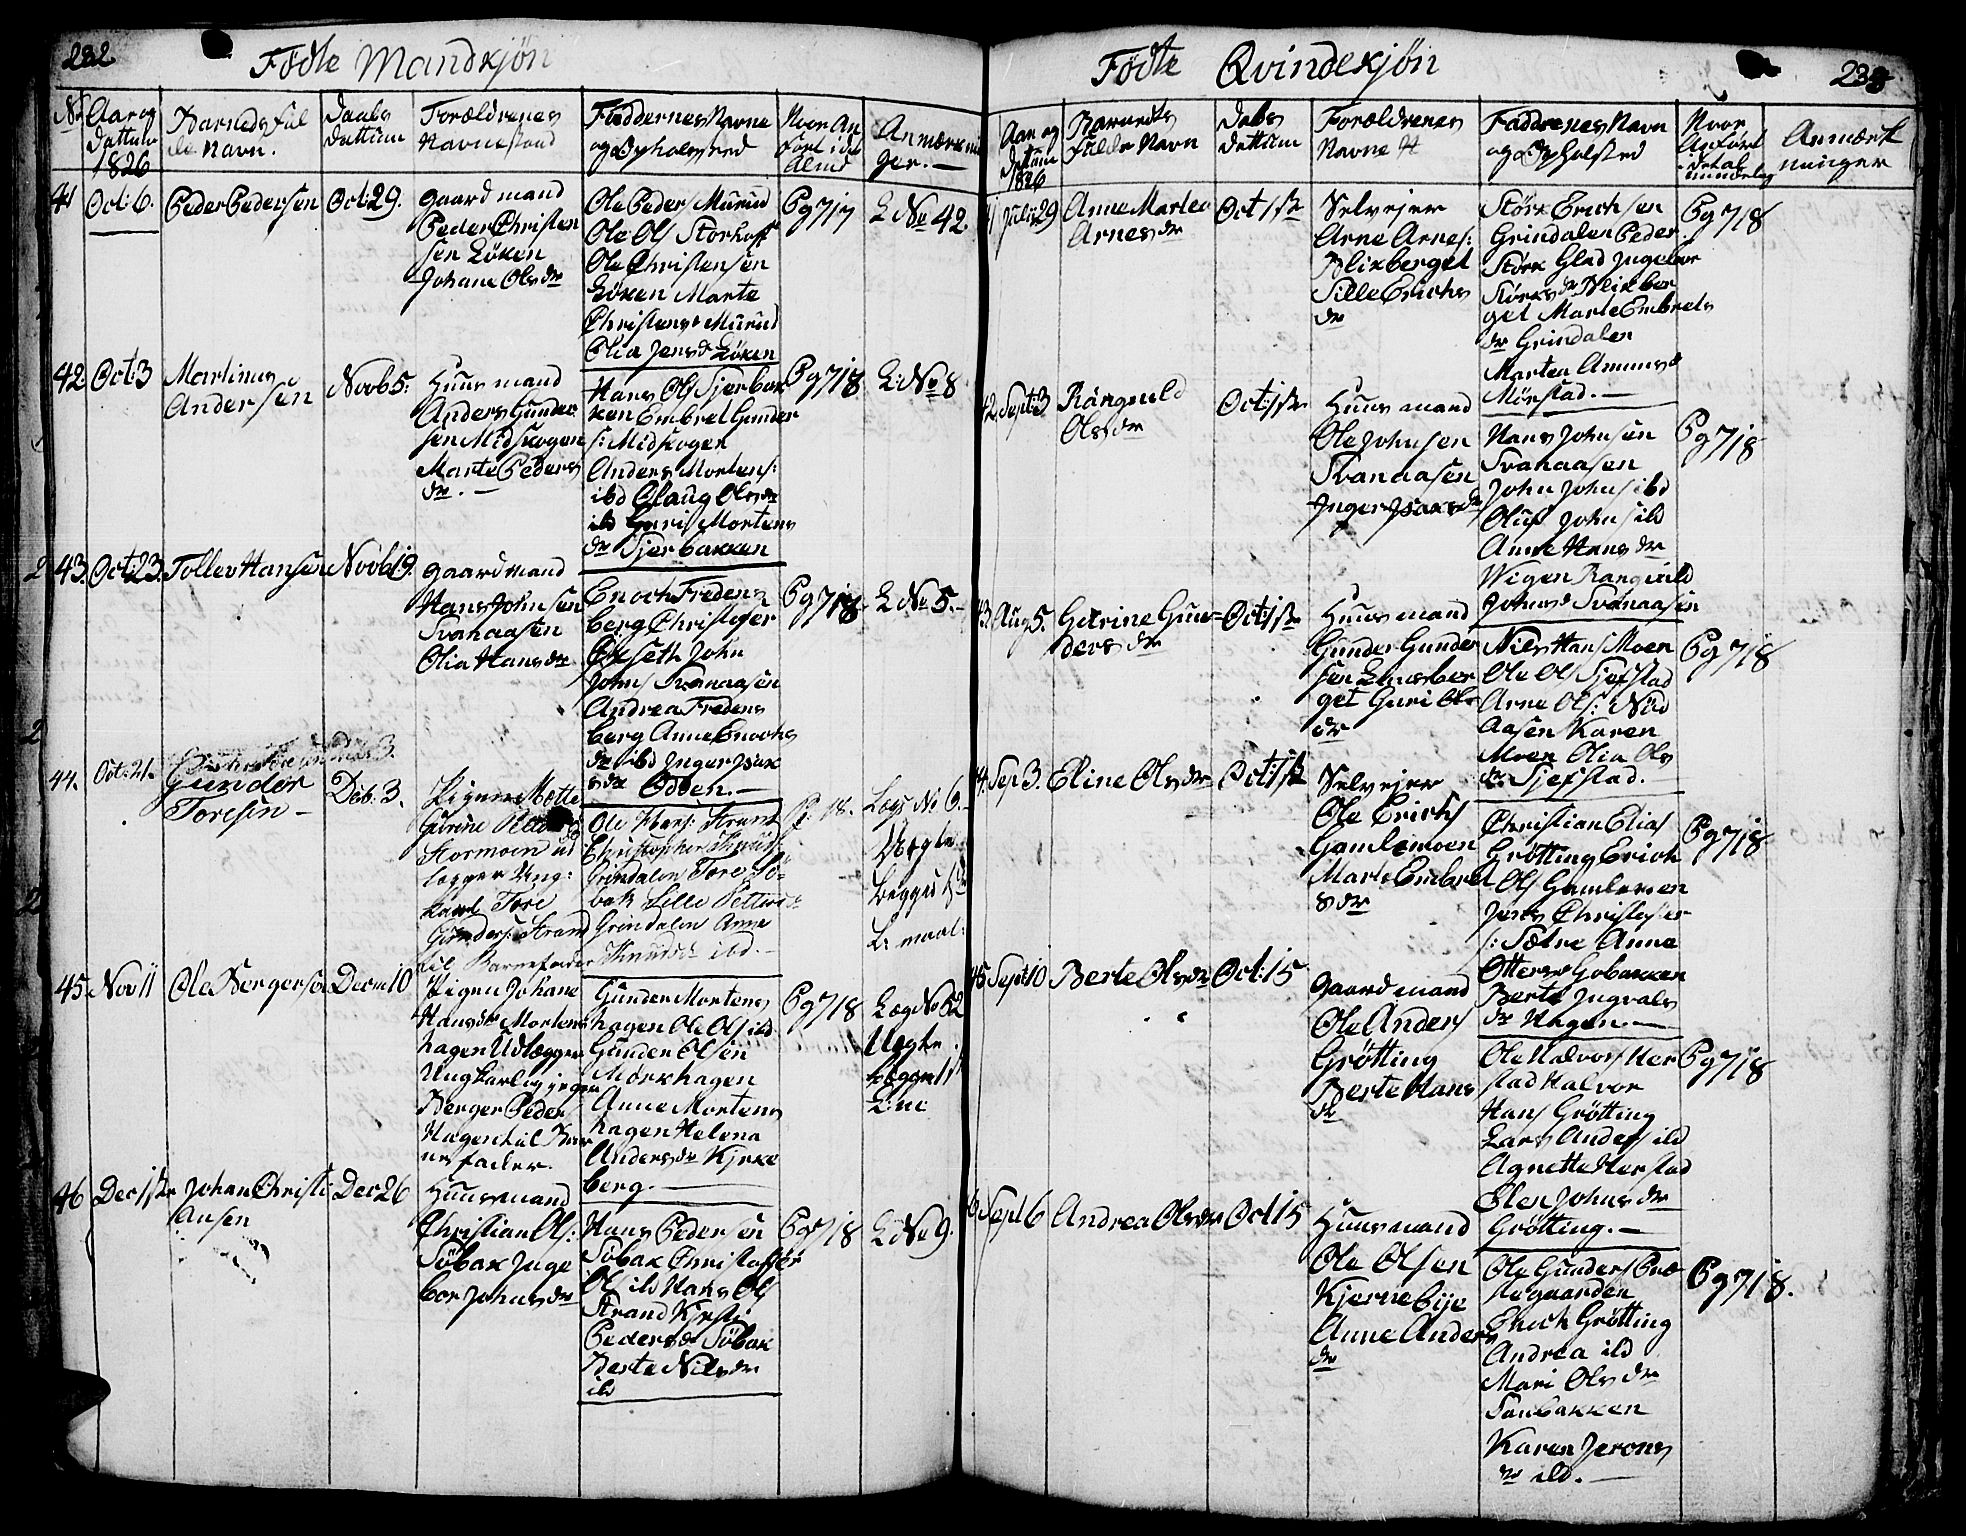 232
Födte Mandkjön
No
Aar og
Dattum
1826
Barneds ful
de Navn.
Daabs
dattum
Forældrenes
Navne stand
Faddernes Navne
og Opholdsted
Hvor An
fört i det
Almd
Anmærknin
ger. —
41
Oct: 6.
Peder Pedersen
Oct: 29.
gaardmand
Peder Christen
sen Löken
Johane Olsdr
Ole Peders Murud
Ole Ols Storhoff
Ole Christensen
Löken Marte
Christensd Murud
Olia Jensd Löken
Pg 717
L No 42.
42
Oct: 3
Martinus
Andersen
Novb 5:
Huusmand
Anders Gunder
sen Midskogen
Marte Peders
dr. —
Hans Ols Sjerbak
ken Embret Gunder
s: Midskogen
Anders Mortens:
ibd Olaug Olsdr
ibd Guri Mortens
dr Sjerbakken
Pg 718
L: No 8
43.
Oct: 23.
Tollev Hansen
Novb 19.
gaardmand
Hans Johnsen
Svanaasen
Olia Hansdr
Enoch Fredens
berg Christofer
Olseth John
Johns Svanaasen
Andrea Fredens
berg Anne Enochs
dr ibd Inger Isak
sdr Odden. —
Pg 718
L No 5. —
44.
Oct: 21.
Gunder
Toresen —
Deb. 3.
Pigen Mette
Stormoen ud
lægger Ung:
karl Tore
Gunders: Strand
til Barnefader
Ole Hans: Strand
Christopher Knuds:
Grindalen Tore Sö-
bak Lille
Grindalen Anne
Knudsd ibd. —
Lægs No 6. —
Uægte
begges 1ste
L: maal:
45
Nov 11
Ole Bergersen
Decm 10
Pigen Johane
Hansdr Mortens
hagen Udlægger
Ungkarl
Berger Peders
Hagen til Bar
nefader.
Gunder Mortens
hagen Ole Ols ibd
Gunder Olsen
Mörkhagen
Anne Mortens
hagen Helena
Andersdr Kjrke
berg. —
Pg 718
Læg No 52
Uægte.
begges 1st
46
Dec 1ste
Johan Christi
ansen
Dec 26
Huusmand
Christian Ols:
Söbak Inge
bor Johnsdr
Hans Pedersen
Söbak Christoffer
Ols ibd Hans Ols
Strand Kjrsti
Pedersdr Söbak
Berte Nilsdr
ibd
Pg 718
L No 9.
Födte Qvindekjön
233
Aar og
Dattum
1826
Barnedts
fulde Navn
Dabs
dattum
Forældrenes
Navne St
Faddrenes Navn
og Opholsted
Hvor
Anfört
i det al
mindelig
Anmærk
ninger
Julii 29
Anne Martea
Arnesdr
Oct 1ste
Selvejer
Arne Arnes:
Blixberget
Sille Erichs
dr
Störk Erichsen
Grindalen Peder
Störk Glad Ingebor
Störksdr Blixber
get Marte Embrets
dr Grindalen
Martea Amunsd
Mörstad. —
Pg 718
42
Sept: 3
Rangnild
Olsdr
Oct: 1ste
Huusmand
Ole Johnsen
Svanaasen
Inger Isaksdr
Hans Johnsen
Svanaasen
John Johns ibd
Oluf Johns ibd
Anne Hansdr
Wigen Rangnild
Johnsd Svanaasen
Pg 718
43
Aug 5.
Gurine Gun=
dersdr
Oct: 1ste
Huusmand
Gunder Gunder
sen
get Guri Ols
dr
Niels Hans Moen
Ole Ols Sjefstad
Arne Ols: Nöd
aasen Karen
Moen Olia Ols
dr Sjefstad.
Pg 718
4.
Sep 3.
Eline Olsdr
Oct: 1ste
Selvejer
Ole Erichs
Gamlemoen
Marte Embret
sdr
Christian Elias
Grötting Erich
Ols Gamlemoen
Jens Christofer
s: Sætre Anne
Ottersd Gobakken
Berte Ingvals
dr Hagen. —
Pg 718
45
Sept 10
Berte Olsdr
Oct: 15
gaardmand
Ole Anders
Grötting
Berte Hans
dr
Ole Halvors Her
stad Halvor
Hans Grötting
Lars Anders ibd
Agnette Herstad
Elen Johnsdr
Grötting. —
Pg 718
6
Sept 6
Andrea Olsdr
Oct 15
Huusmand
Ole Olsen
Kjernebye
Anne Anders
dr
Ole Gunders Præ
stegaarden
Erich Grötting
Andrea ibd
Mari Olsdr
Sanbakken
Karen Jerons
dr ibd. —
Pg 718.